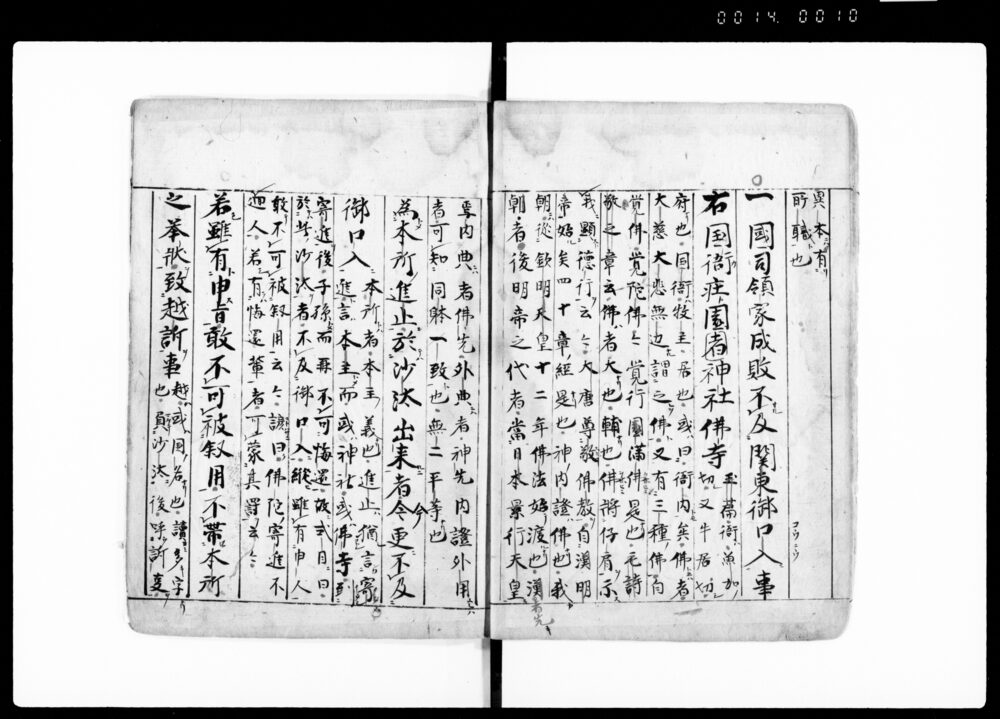 0014. 0010
異本有
所職也
一國司領家成敗不及関東御口入事
右国衙庄園者神社佛寺
玉篇衙魚加
切又牛居切
府也国衙牧主居也或曰衙内矣佛者
大慈大悲無边謂之佛又有三種佛自
覚佛覚他佛亼覚行圓滿佛是也毛詩
敬之章云佛者大也輔也佛將仔肩示
我顕德行云亼大唐尊敬佛教自漢明
帝始矣四十章經是也神内證佛也我
朝從欽明天皇十二年佛法始渡也漢
朝者後明帝之代者當日本景行天皇
内典者佛先外典者神先内證外用
者可知同躰一致也無二平等也
為本所進止於沙汰出来者今更不及
御口入
本所者本主義也進止猶言寄
進言本主而或神社或佛寺
寄進後子孫而再不可悔還故式目曰
於沙汰者不及御口入縱雖有申人
敢不可被叙用云亼諺曰佛陀寄進不
迴人若有悔還輩者可蒙其罰云亼
若雖有申旨敢不可被叙用不帯本所
之挙状致越訴事
越或用若也讀多字
也員沙汰後呼訴